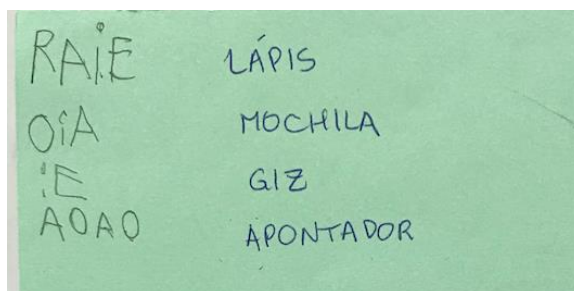 RAIE LÁPIS
OIA MOCHILA
IE GIZ
AOAO APONTADOR